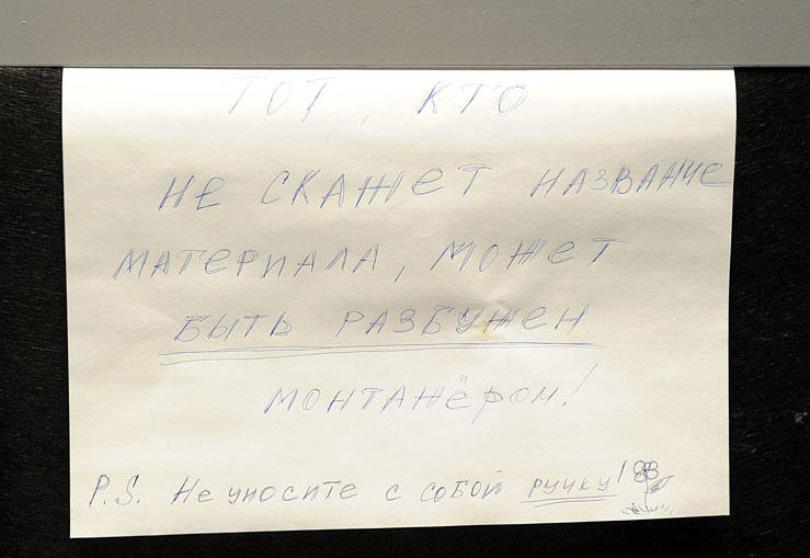 ТОТ, КТО
НЕ СКАЖЕТ НАЗВАНИЕ
МАТЕРИАЛА, МОЖЕТ
БЫТЬ РАЗБУЖЕН
МОНТАЖЁРОМ!
P.S. Не уносите с собой ручку!